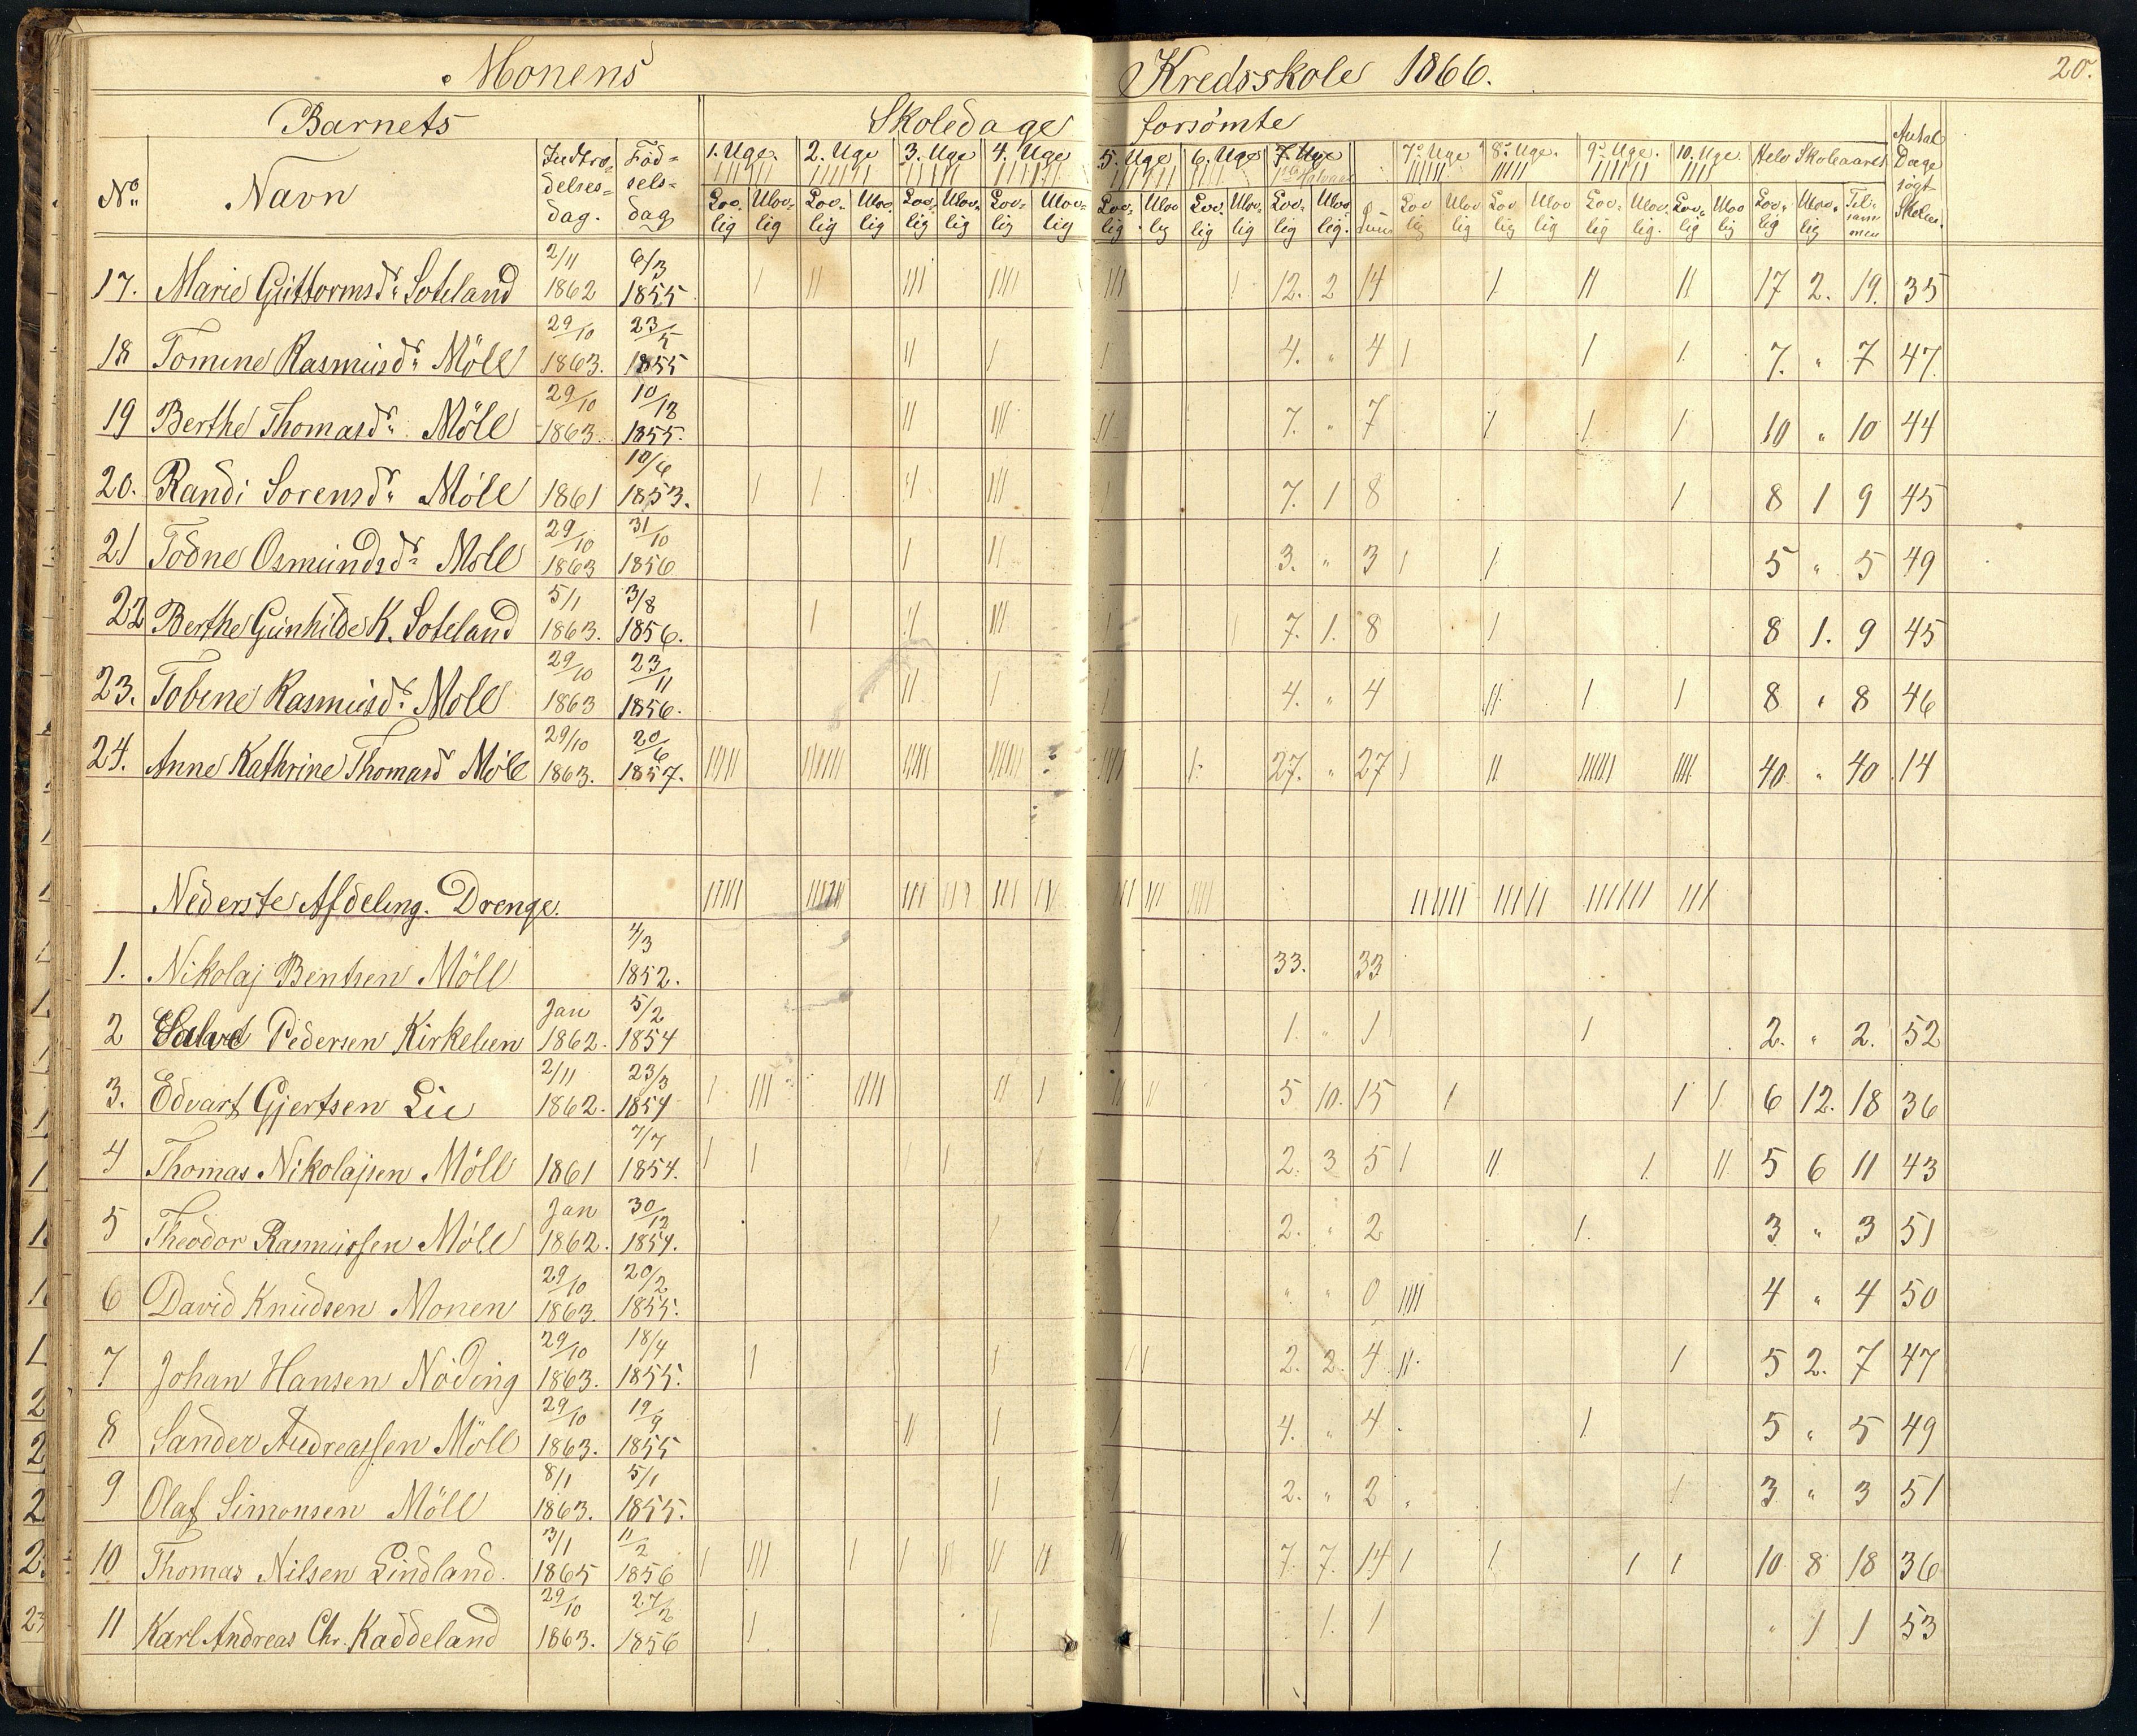 Monens Kredsskole 1866. 20.
Barnets Skoledage forsømte Antal Dage søgt Skolen.
No Navn Indtrædelsesdag. Fødselsdag 1. Uge. 2. Uge 3. Uge 4. Uge 5. Uge 6. Uge 7. Uge 7de Uge 8de Uge. 9de Uge. 10. Uge. Hele Skoleaaret
Lovlig Ulovlig Lovlig Ulovlig Lovlig Ulovlig Lovlig Ulovlig Lovlig Ulovlig Lovlig Ulovlig Lovlig Ulovlig Lovlig Ulovlig Lovlig Ulovlig Lovlig Ulovlig Lovlig Ulovlig Lovlig Ulovlig Tilsammen
17. Marie Guttormsdr Soteland 2/11 1862 6/3 1855 12. 2 14 17 2. 19. 35
18 Tomine Rasmusdr Möll 29/10 1863. 23/5 1855 4. " 4 7. " 7 47.
19 Berthe Thomasdr Möll 29/10 1863. 10/12 1855. 7. " 7 10 " 10 44
20. Randi Sorensdr Möll 1861 10/6 1853. 7. 1 8 8 1 9 45
21 Todne Osmundsdr Möll 29/10 1863 31/10 1856 3. " 3 5 " 5 49
22 Berthe Gunhilde K. Soteland 5/1 1863. 3/8 1856. 7. 1. 8 8 1. 9 45
23. Tobine Rasmusdr Möll 29/10 1863 23/11 1856. 4. " 4 8 " 8 46
24. Anne Kathrine Thomasd Möll 29/10 1863. 20/6 1857. 27. " 27 40 " 40 14
Nederste Afdeling. Drenge.
1. Nikolaj Bentsen Möll 4/3 1852. 33. 33
2 Pedersen Kirkelien Jan 1862. 5/2 1854 1. " 1 2. " 2. 52
3. Edvart Gjertsen Lie 2/11 1862. 23/3 1854 5 10. 15 6 12. 18 36
4 Thomas Nikolajsen Möll 1861 7/7 1854. 2. 3 5 5 6 11 43
5 Theodor Rasmussen Möll Jan 1862. 30/12 1854. 2. " 2 3 " 3 51
6 David Knudsen Monen 29/10 1863. 20/2 1855. " " 0 4 " 4 50
7 Johan Hansen Nöding 29/10 1863. 18/4 1855. 2. 2. 4 5 2. 7 47
8 Sander Andreassen Möll 29/10 1863. 19/9 1855 4. " 4 5 " 5 49
9 Olaf Simonsen Möll 8/1 1863. 5/1 1855. 2. " 2 3 " 3 51
10 Thomas Nilsen Lindland. 3/1 1865 11/2 1856 7. 7. 14 10 8 18 36
11 Karl Andreas Chr. Kaddeland 29/10 1863. 27/2 1856 1. 1 " 1 1 53